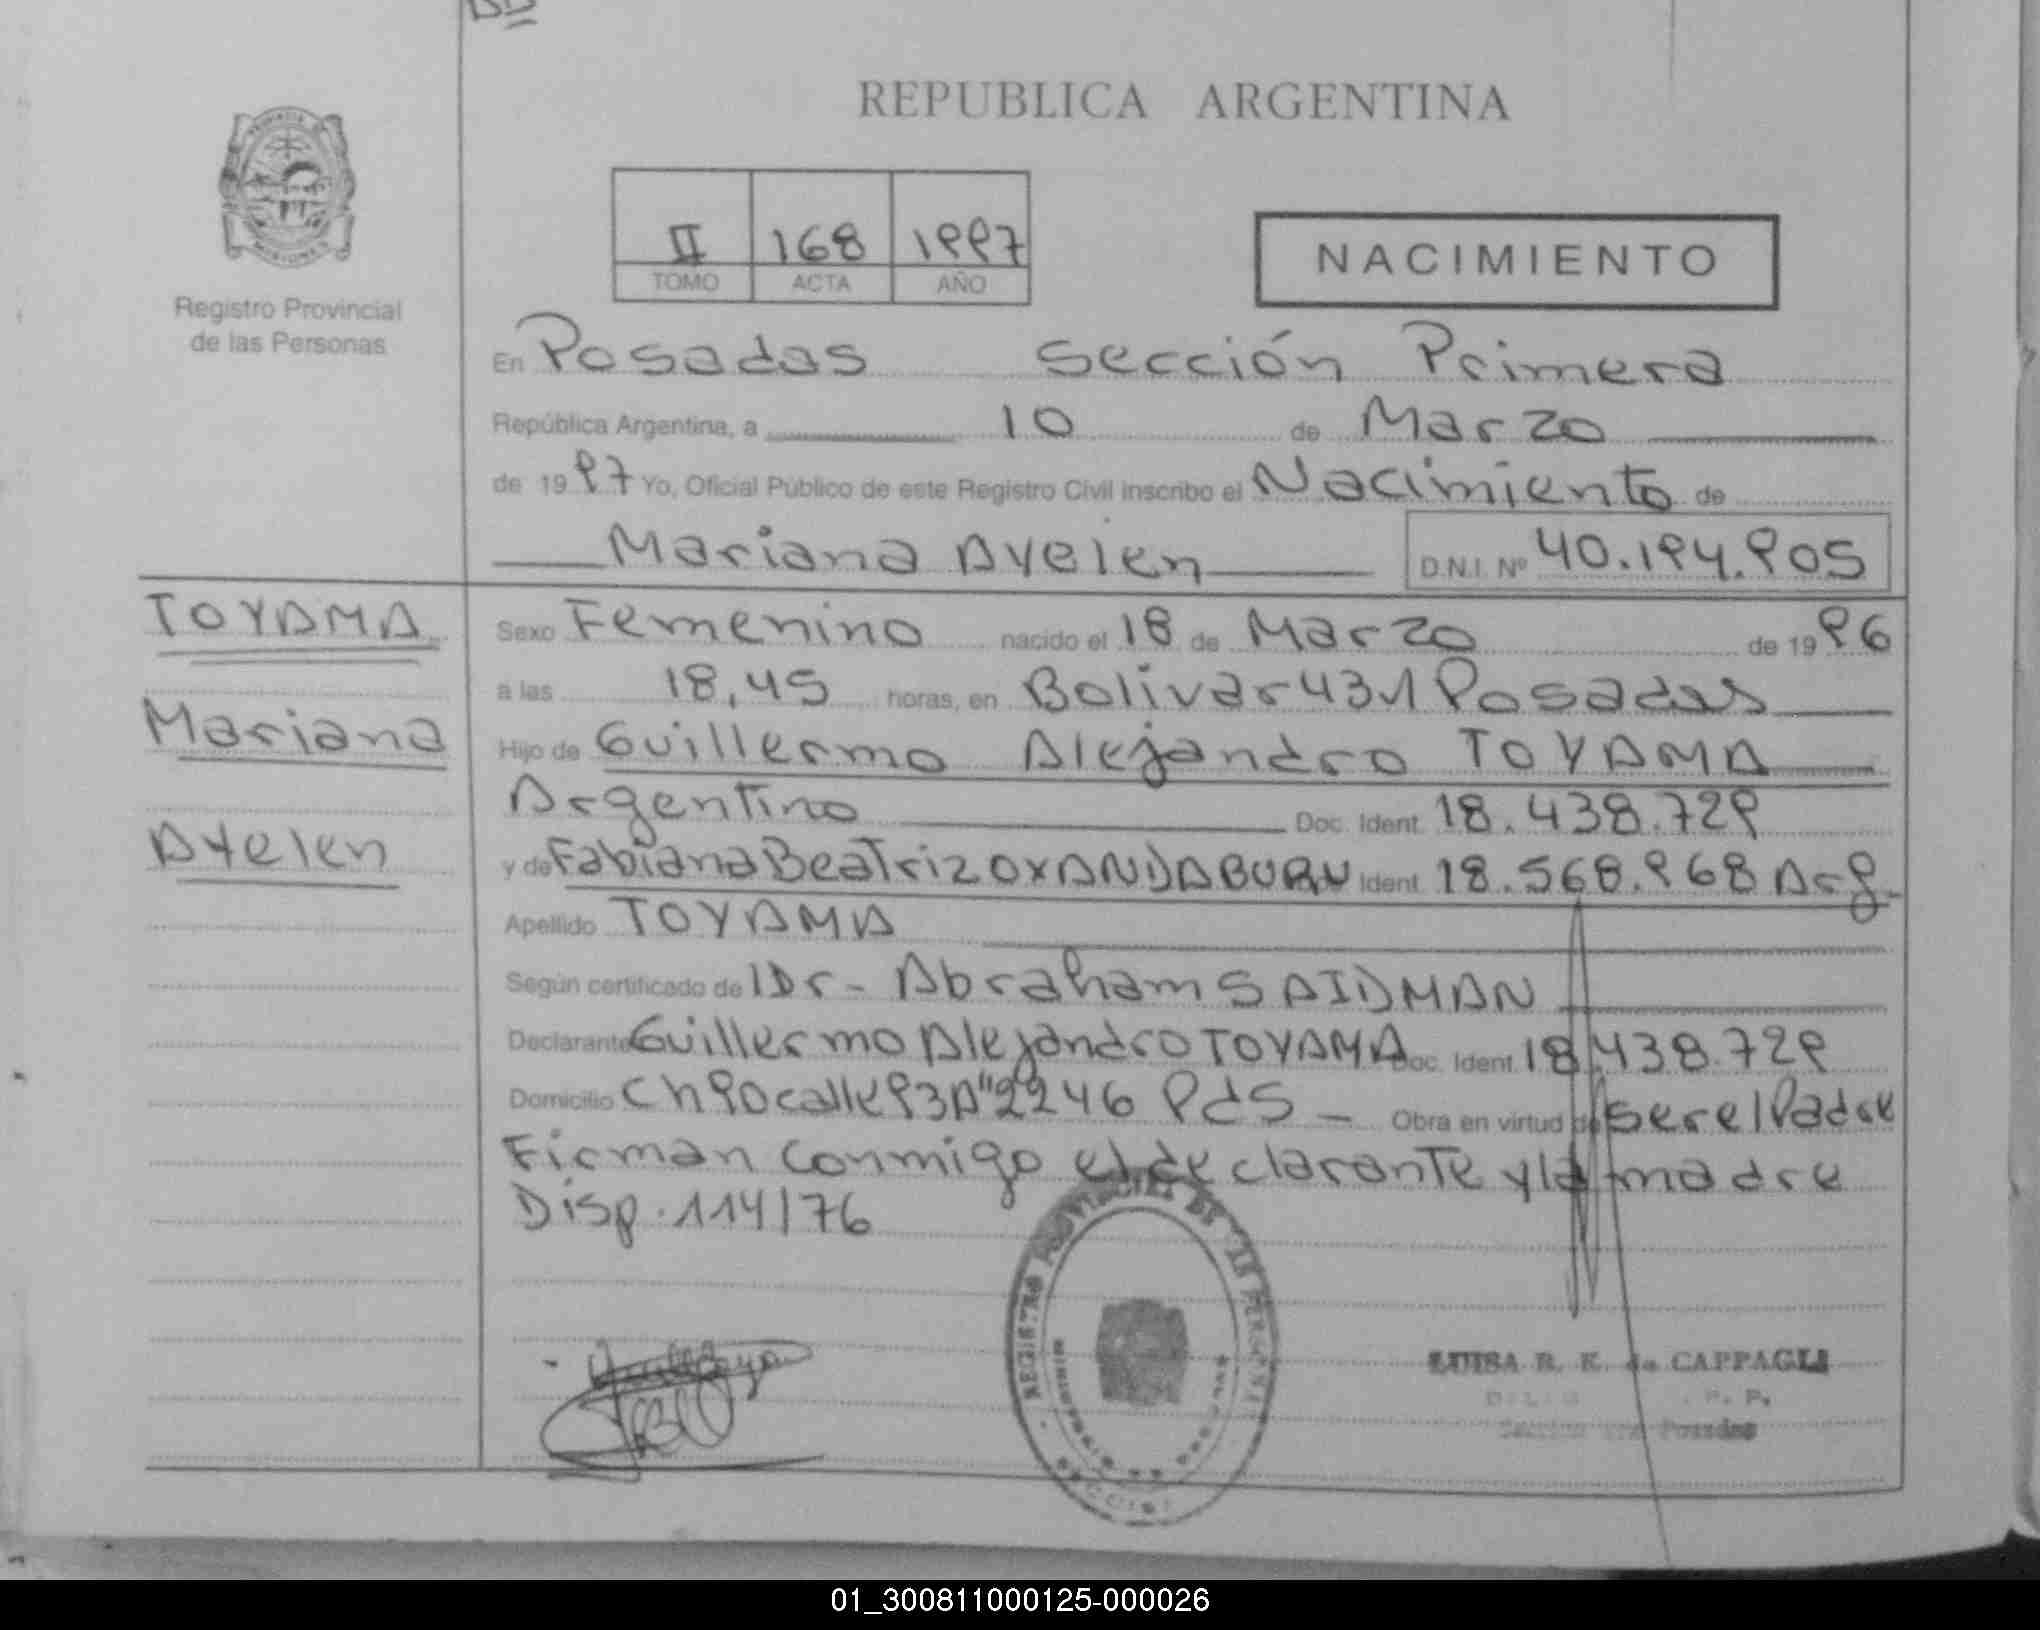 REPUBLICA ARGENTINA
Registro Provincial
de las Personas
II 168 1997
TOMO ACTA AÑO
NACIMIENTO
En Posadas Sección Primera
República Argentina, a 10 de Marzo
de 1997 Yo, Oficial Público de este Registro Civil inscribo el Nacimiento de
Mariana Ayelen D.N.I. Nº 40.194.905
TOYAMA
Mariana
Ayelen
Sexo Femenino nacido el 18 de Marzo de 1996
a las 18,45 horas, en Bolivar 431 Posadas
Hijo de Guillermo Alejandro TOYAMA
Argentino Doc. Ident. 18.438.729
y de Fabiana Beatriz OXANDABURU Ident. 18.568.968 Arg.
Apellido TOYAMA
Según certificado de Dr. Abraham SAIDMAN
Declarante Guillermo Alejandro TOYAMA Doc. Ident. 18.438.729
Domicilio Ch 90 calle 93A" 2246 Pds - Obra en virtud de ser el Padre
Firman conmigo el declarante y la madre
Disp. 114/76
REGISTRO PROVINCIAL DE LAS PERSONAS
LUISA R. K. de CAPPAGLI
Posadas
01_300811000125-000026